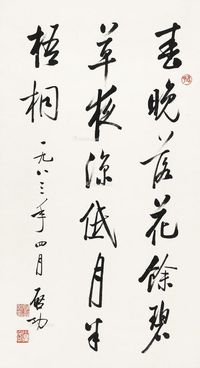 春晚落花餘碧
草夜涼低月半
梧桐
一九八三年四月 启功